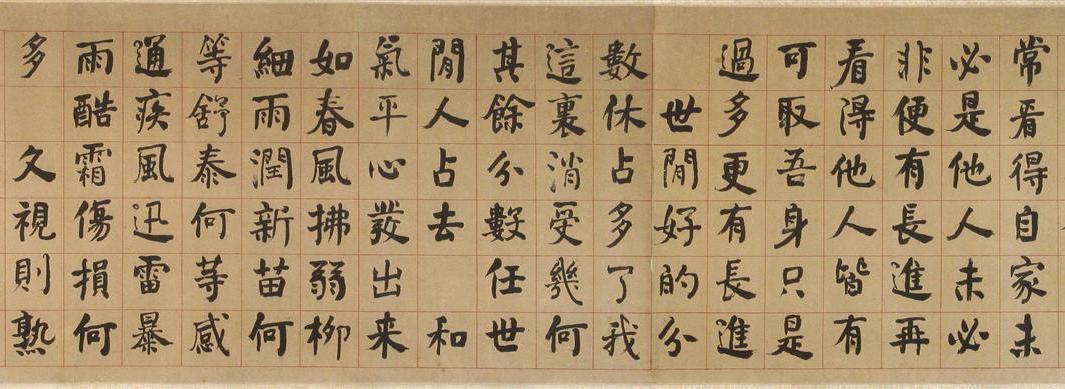 常看得自家未
必是他人未必
非便有長進再
看得他人皆有
可取吾身只是
過多更有長進
世閒好的分
數休占多了我
這裏消受幾何
其餘分數任世
閒人占去 和
氣平心發出来
如春風拂弱柳
細雨潤新苗何
等舒泰何等感
通疾風迅雷暴
雨酷霜傷損何
多 久視則熟